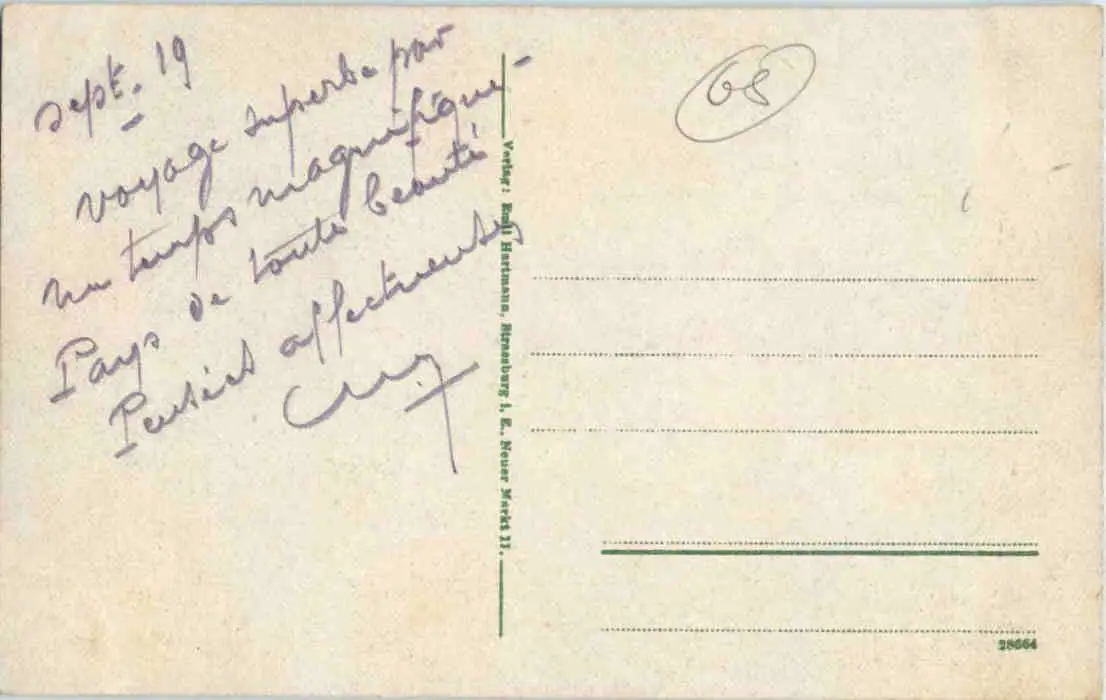 sept. 19
voyage superbe par
un temps magnifique -
Pays de toute beauté
Pensées affectueuses
68
Verlag: Emil Hartmann, Strassburg i. E., Neuer Markt 11.
28664